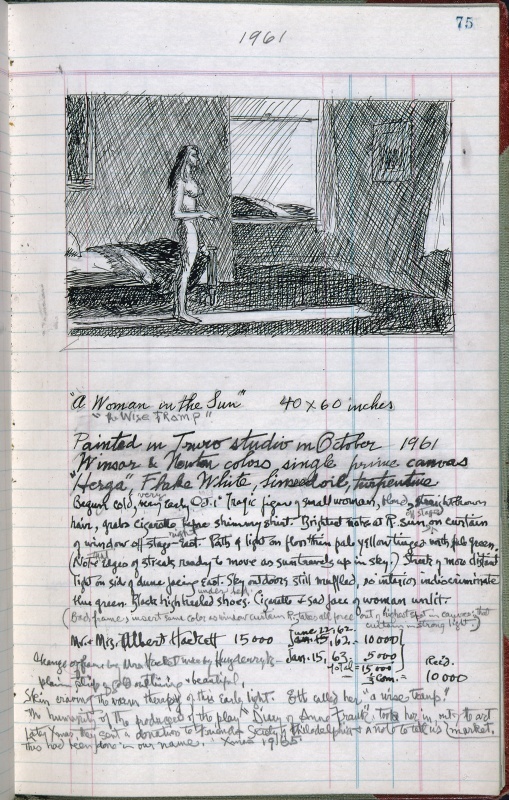 75
1961
"A Woman in the Sun" 40 x 60 inches
"A Wise Tramp"
Painted in Truro studio in October 1961
Winsor & Newton colors, single prime canvas
"Herga" Flake White, linseed oil, turpentine
Begun cold, very early Oct. 1st Tragic figure of small woman, blond, straight brown
hair, grabs cigarette before shimmy shirt. Brightest note at R. sun on curtain
of window off stage right East. Path of light on floor then pale yellow tinged with pale green.
(Note edges of streak ready to move as sun travels up in sky.) Streak of more distant
light on side of dune facing East. Sky outdoors still muffled, so interior indiscriminate
blue green. Black high heeled shoes under bed. Cigarette & sad face of woman unlit.
(Bad frame; insert same color as window curtain R. takes all force out of highest spot in canvas, that
curtain in strong light.)
Mr. & Mrs. Albert Hackett 15000
June 12, 62. 10000
Jan. 15, 63. 5000
Total = 15000
1/3 Com. =
Rec'd.
10000
Change of frame by Mrs. Hackett made by Heydenryk
plain strip of gold outlining & beautiful.
Skin craving the warm therapy of this early light. Eth calls her "a wise tramp."
The humanity of the producers of the play "Diary of Anne Frank", took her in, out of the art market.
Later Xmas they sent a donation to Friends Society of Philadelphia & a note to tell us
this had been done in our name. Xmas 1965